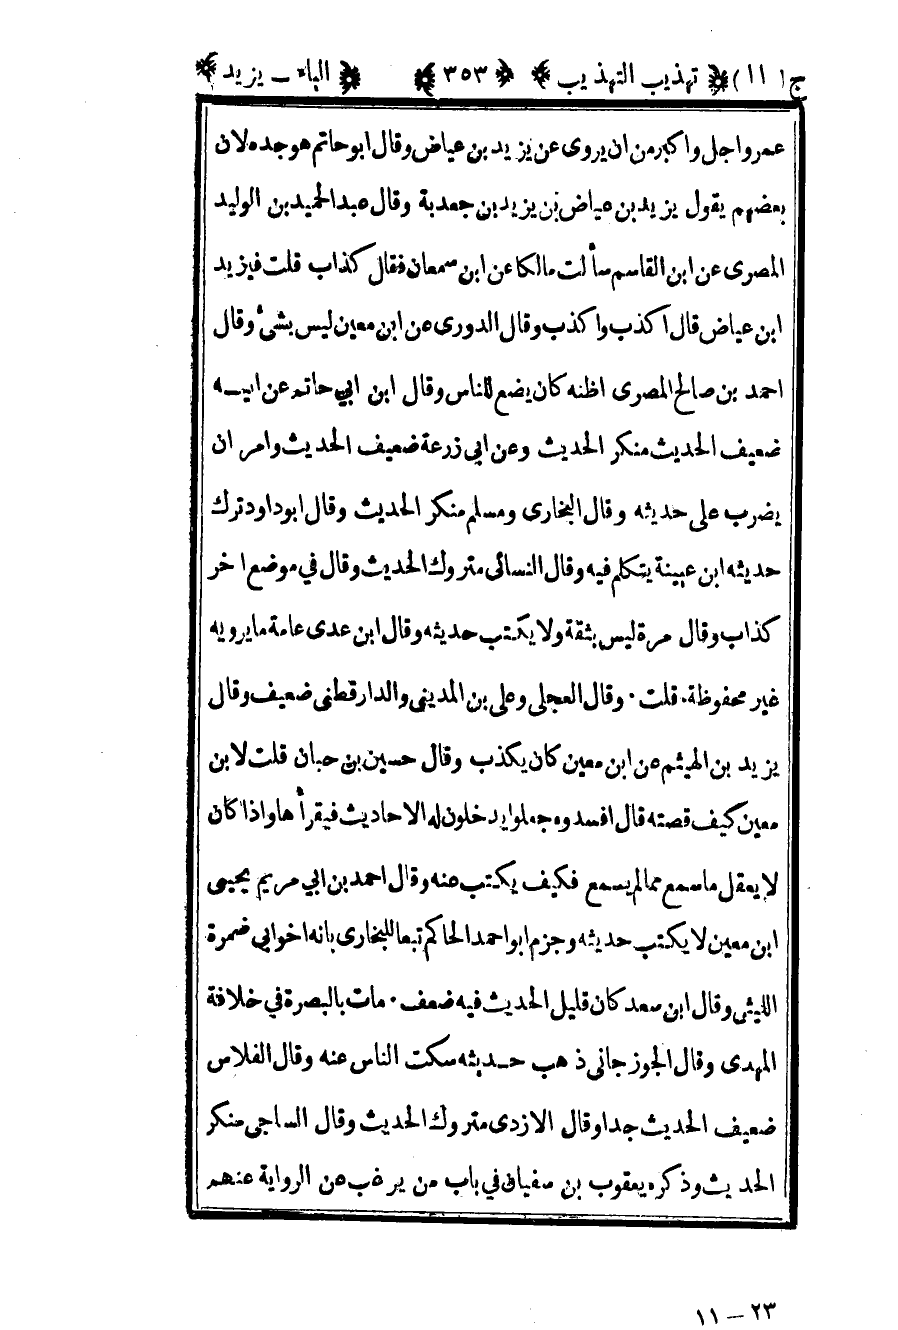 ج (١١) ﴿ تهذيب التهذيب ﴾ ﴿ ٣٥٣ ﴾ ﴿ الياء ــ يزيد ﴾
عمرو اجل واكبر من ان يروى عن يزيد بن عياض وقال ابو حاتم هو جده لان
بعضهم يقول يزيد بن عياض بن يزيد بن جعدبة وقال عبد الحميد بن الوليد
المصرى عن ابن القاسم سألت مالكا عن ابن سمعان فقال كذاب قلت فيزيد
ابن عياض قال اكذب واكذب وقال الدورى عن ابن معين ليس بشئ وقال
احمد بن صالح المصرى اظنه كان يضع للناس وقال ابن ابي حاتم عن ابيــه
ضعيف الحديث منكر الحديث وعن ابي زرعة ضعيف الحديث وامر ان
يضرب على حديثه وقال البخارى ومسلم منكر الحديث وقال ابو داود ترك
حديثه ابن عيينة يتكلم فيه وقال النسائى متروك الحديث وقال في موضع اخر
كذاب وقال مرة ليس بثقة ولا يكتب حديثه وقال ابن عدى عامة ما يرويه
غير محفوظة. قلت. وقال العجلي وعلي بن المديني والدارقطنى ضعيف وقال
يزيد بن الهيثم عن ابن معين كان يكذب وقال حسين بن حبان قلت لابن
معين كيف قصته قال افسدوه جعلوا يدخلون له الاحاديث فيقرأها واذا كان
لا يعقل ما سمع مما لم يسمع فكيف يكتب عنه وقال احمد بن ابي مريم يحيى
ابن معين لا يكتب حديثه وجزم ابو احمد الحاكم تبعا للبخارى بانه اخو ابي ضمرة
الليثى وقال ابن سعد كان قليل الحديث فيه ضعف. مات بالبصرة في خلافة
المهدى وقال الجوزجاني ذهب حــديثه سكت الناس عنه وقال الفلاس
ضعيف الحديث جدا وقال الازدى متروك الحديث وقال الساجى منكر
الحديث وذكره يعقوب بن سفيان في باب من يرغب عن الرواية عنهم
٢٣ — ١١